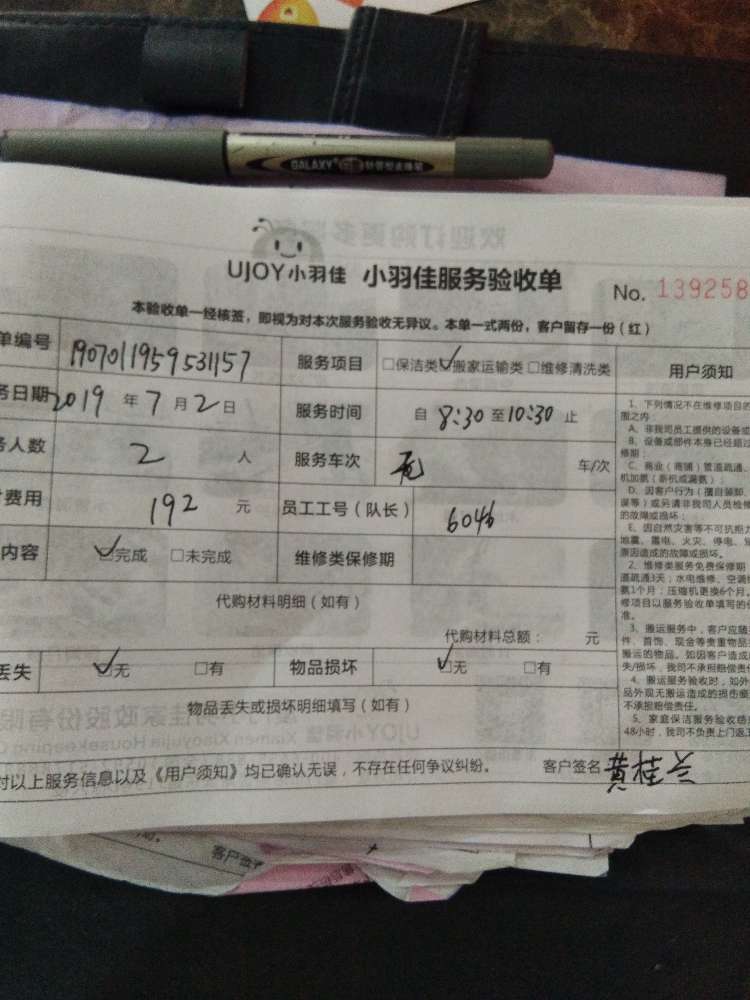 GALAXY
UJOY小羽佳 小羽佳服务验收单 No. 139258
本验收单一经核签，即视为对本次服务验收无异议。本单一式两份，客户留存一份（红）
单编号 1907011959531157 服务项目 □保洁类 ☑搬家运输类 □维修清洗类 用户须知
务日期 2019 年 7 月 2 日 服务时间 自 8:30 至 10:30 止
务人数 2 人 服务车次 无 车/次
费用 192 元 员工工号（队长） 6046
内容 ☑完成 □未完成 维修类保修期
代购材料明细（如有）
代购材料总额： 元
丢失 ☑无 □有 物品损坏 ☑无 □有
物品丢失或损坏明细填写（如有）
对以上服务信息以及《用户须知》均已确认无误，不存在任何争议纠纷。 客户签名 黄桂兰
1、下列情况不在维修项目的
围之内：
A、非我司员工提供的设备或
B、设备或部件本身已经超过
修期；
C、商业（商铺）管道疏通、
机加氨（新机或漏氨）；
D、因客户行为（擅自装卸、
误等）或另请非我司人员检修
的故障或损坏；
E、因自然灾害等不可抗拒力
地震、雷电、火灾、停电、
原因造成的故障或损坏。
2、维修类服务免费保修期
道疏通3天；水电维修、空调
氨1个月；压缩机更换6个月。
修项目以服务验收单填写的
准。
3、搬运服务中，客户应随
件、首饰、现金等贵重物品
搬运的物品。如因客户造成
失/损坏，我司不承担赔偿责
4、搬运服务验收时，如外
品外观无搬运造成的损伤
不承担赔偿责任。
5、家庭保洁服务验收
48小时，我司不负责上门返工